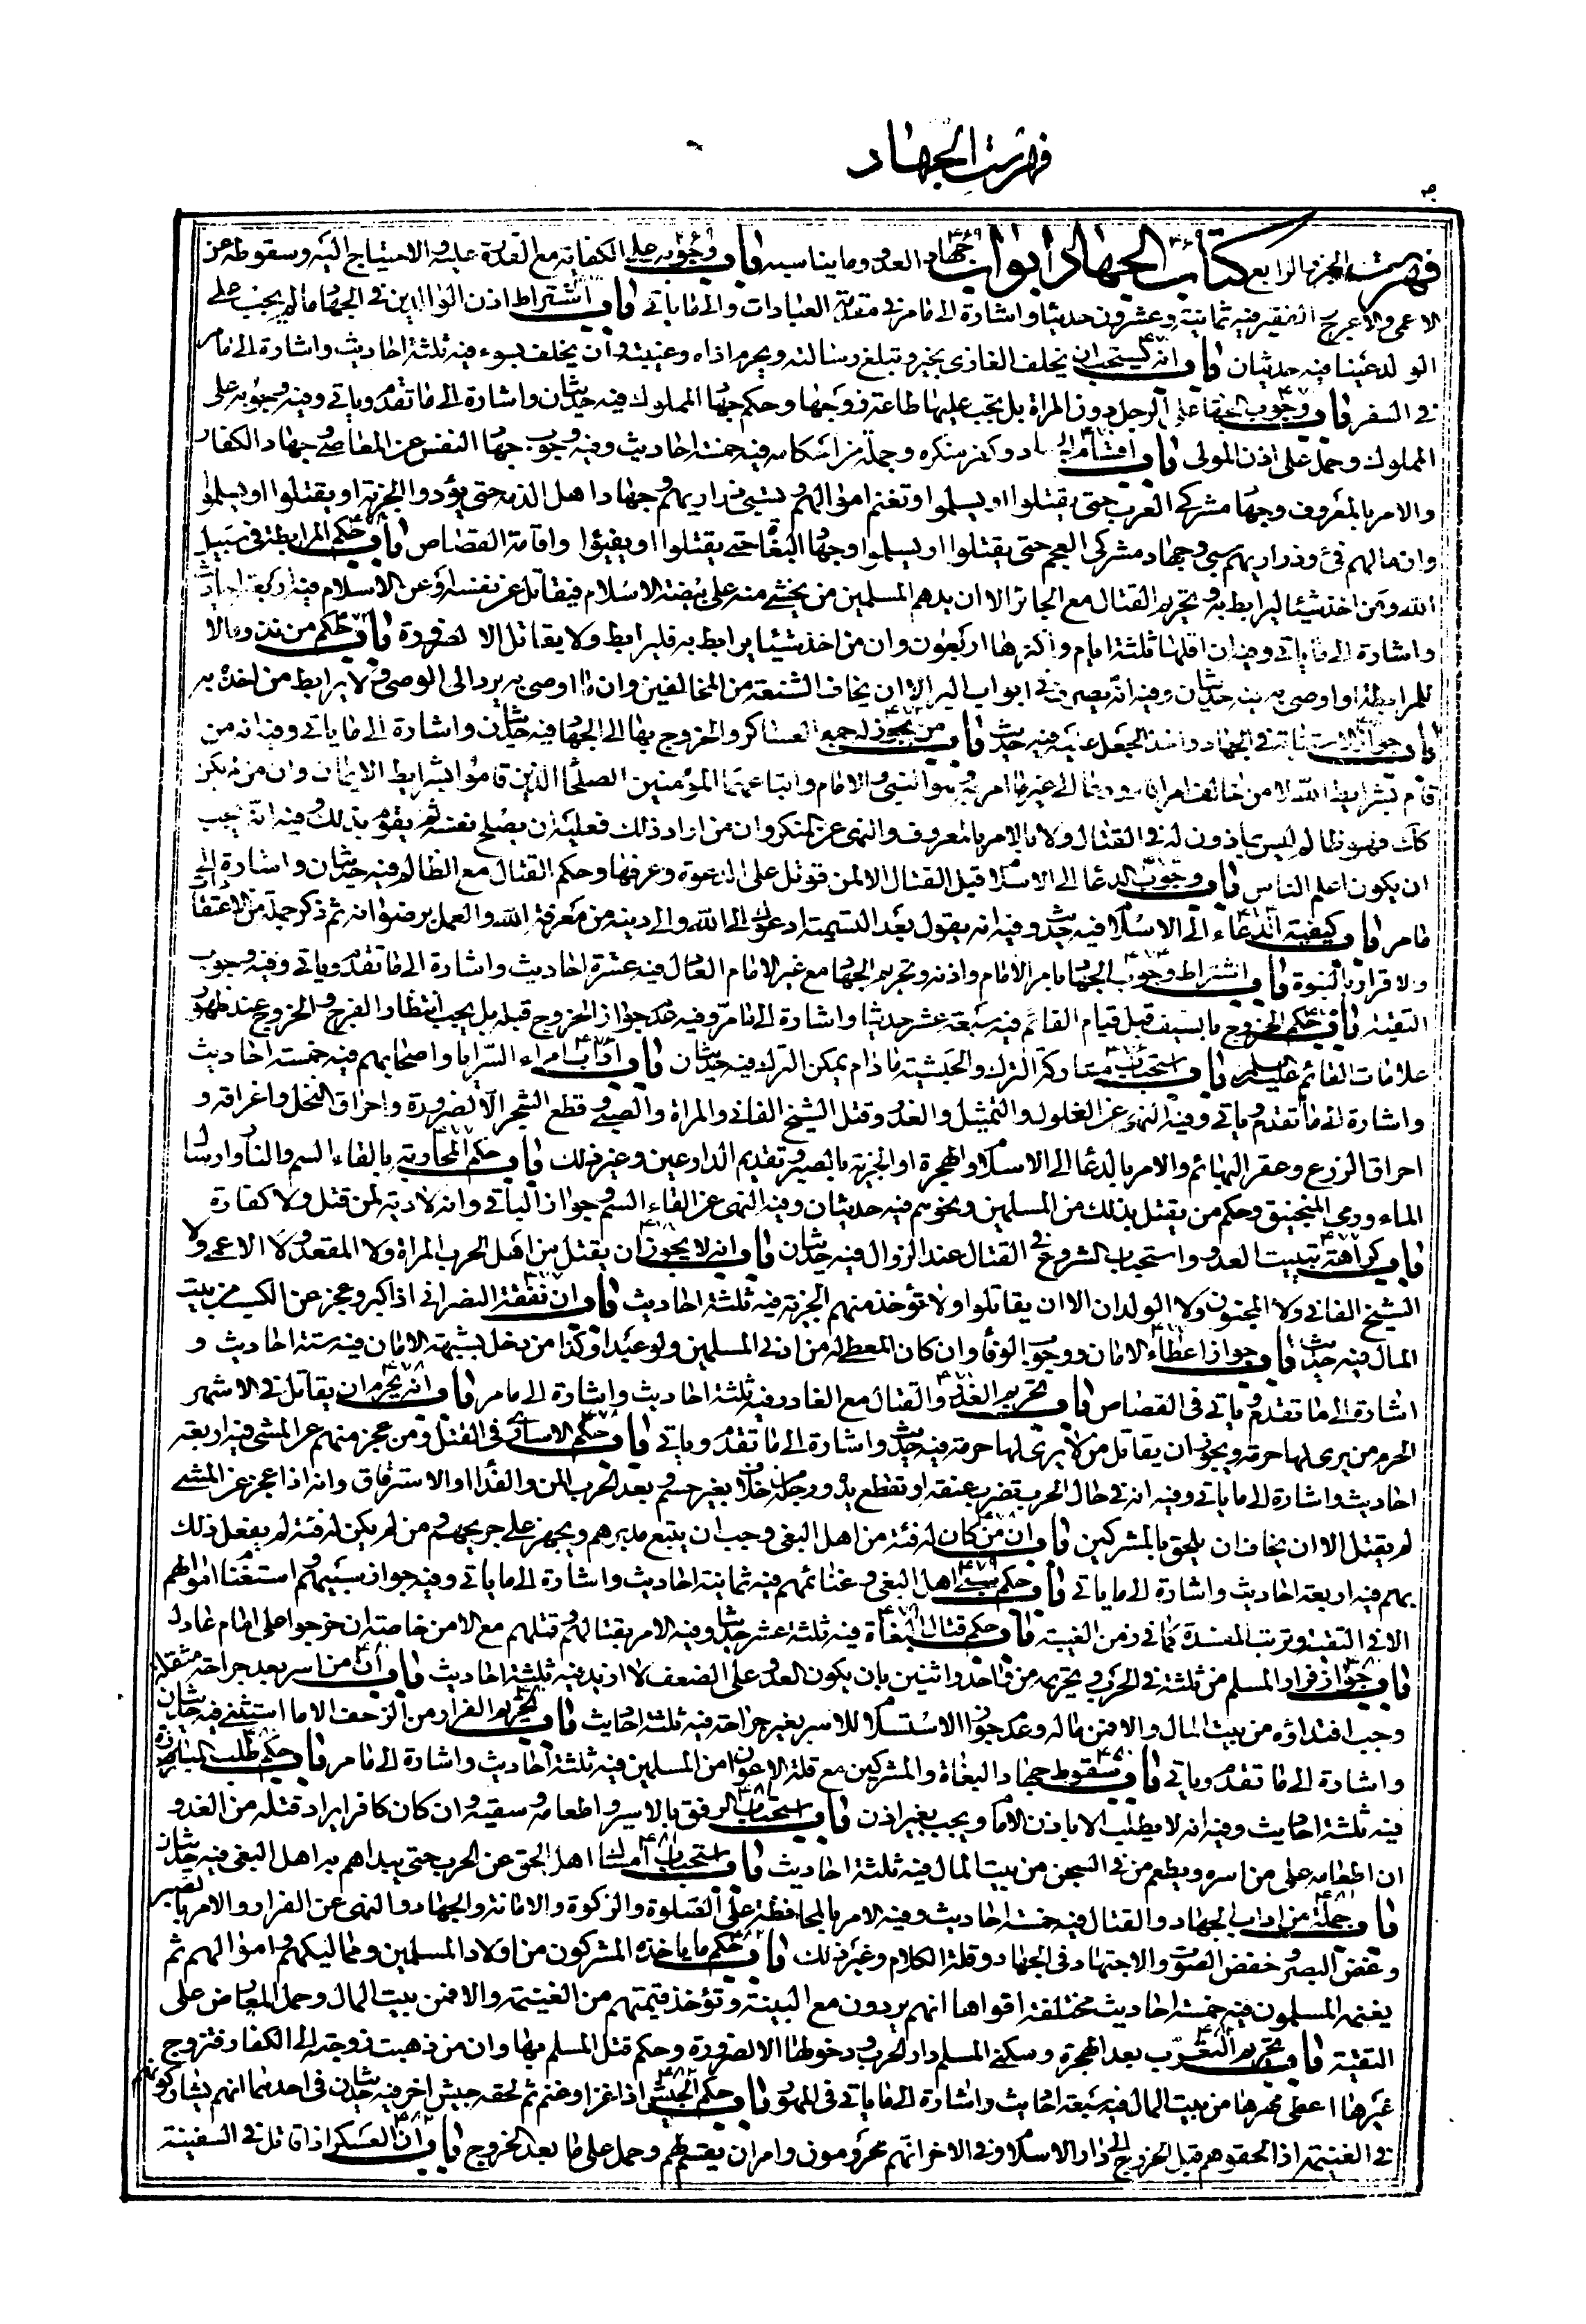 فهرست الجهاد
فهرست الجزء الرابع كتاب الجهاد ابواب جهاد العدو وما يناسبه باب وجوبه على الكفاية مع القدرة عليه والاحتياج اليه وسقوطه عن
الاعمى والاعرج الفقير فيه ثمانية وعشرون حديثا واشارة الى ما مر في مقدمة العبادات والى ما ياتي باب اشتراط اذن الوالدين في الجهاد ما لم يجب على
الولد عينا فيه حديثان باب انه يستحب ان يخلف الغازي بخير وتبلغ رسالته ويحرم اذاه وغيبته وان يخلف بسوء فيه ثلثة احاديث واشارة الى ما مر
في السفر باب وجوب الجهاد على الرجل دون المراة بل يجب عليها طاعة زوجها وحكم جهاد المملوك فيه حديثان واشارة الى ما تقدم وياتي وفيه وجوبه على
المملوك وحمل على اذن المولى باب اقسام الجهاد وكفر منكره وجملة من احكامه فيه خمسة احاديث وفيه وجوب جهاد النفس عن المعاصي وجهاد الكفار
والامر بالمعروف وجهاد مشركي العرب حتى يقتلوا او يسلموا وتغنم اموالهم وتسبى ذراريهم وجهاد اهل الذمة حتى يؤدوا الجزية او يقتلوا او يسلموا
وان مالهم فئ وذراريهم سبي وجهاد مشركي العجم حتى يقتلوا او يسلموا وجهاد البغاة حتى يقتلوا او يفيئوا واقامة القصاص باب حكم المرابطة في سبيل
الله ومن اخذ شيئا ليرابط به وتحريم القتال مع الجائر الا ان يدهم المسلمين من يخشى منه على بيضة الاسلام فيقاتل عن نفسه او عن الاسلام فيه اربعة احاديث
واشارة الى ما ياتي وفيه ان اقلها ثلثة ايام واكثرها اربعون وان من اخذ شيئا يرابط به فليرابط ولا يقاتل الا لضرورة باب حكم من نذر مالا
للمرابطة او اوصى به فيه حديثان وفيه انه يصرف في ابواب البر الا ان يخاف الشنعة من المخالفين وان اوصى به يرد الى الوصي ولا يرابط من اخذ به
باب جواز الاستنابة في الجهاد واخذ الجعل عليه فيه حديث باب من يجوز له جمع العساكر والخروج بها الى الجهاد فيه حديثان واشارة الى ما ياتي وفيه انه من
قام بشرايط الله لا من خالف امر الله ودعا الى غير ما امر به وهو النبي والامام واتباعهما المؤمنين الصلحاء الذين قاموا بشرايط الايمان وان من لم يكن
كذلك فهو ظالم ليس بماذون له في القتال ولا بالامر بالمعروف والنهي عن المنكر وان من اراد ذلك فعليه ان يصلح نفسه ثم يقوم بذلك وفيه انه يجب
ان يكون اعلم الناس باب وجوب الدعاء الى الاسلام قبل القتال الا لمن قوتل على الدعوة وعرفها وحكم القتال مع الظالم فيه حديثان واشارة الى
ما مر باب كيفية الدعاء الى الاسلام فيه حديث وفيه انه يقول بعد التسمية ادعوك الى الله والى دينه من معرفة الله والعمل برضوانه ثم ذكر جملة من الاعتقادات
والاقرار بالنبوة باب اشتراط وجوب الجهاد بامر الامام واذنه وتحريم الجهاد مع غير الامام العادل فيه عشرة احاديث واشارة الى ما تقدم وياتي وفيه وجوب
التقية باب حكم الخروج بالسيف قبل قيام القائم فيه سبعة عشر حديثا واشارة الى ما مر وفيه عدم جواز الخروج قبله بل يجب انتظار الفرج والخروج عند ظهور
علامات القائم عليه السلم باب استحباب متاركة الترك والحبشة ما دام يمكن الترك فيه حديثان باب اداب امراء السرايا واصحابهم فيه خمسة احاديث
واشارة الى ما تقدم وياتي وفيه النهي عن الغلول والتمثيل والغدر وقتل الشيخ الفاني والمراة والصبي وقطع الشجر الا لضرورة واحراق النخل واغراقه و
احراق الزرع وعقر البهائم والامر بالدعاء الى الاسلام والهجرة او الجزية بالصبر وتقديم الدارعين وغير ذلك باب حكم المحاربة بالقاء السم والنار وارسال
الماء ورمي المنجنيق وحكم من يقتل بذلك من المسلمين ونحوهم فيه حديثان وفيه النهي عن القاء السم وجواز الباقي وانه لا دية لمن قتل ولا كفارة
باب كراهة تبييت العدو واستحباب الشروع في القتال عند الزوال فيه حديثان باب انه لا يجوز ان يقتل من اهل الحرب المراة ولا المقعد ولا الاعمى ولا
الشيخ الفاني ولا المجنون ولا الولدان الا ان يقاتلوا ولا تؤخذ منهم الجزية فيه ثلثة احاديث باب ان نفقة النصراني اذا كبر وعجز عن الكسب من بيت
المال فيه حديث باب جواز اعطاء الامان ووجوب الوفاء وان كان المعطى له من ادنى المسلمين ولو عبدا وكذا من دخل بشبهة الامان فيه ستة احاديث و
اشارة الى ما تقدم وياتي في القصاص باب تحريم الغدر والقتال مع الغادر فيه ثلثة احاديث واشارة الى ما مر باب انه يحرم ان يقاتل في الاشهر
الحرم من يرى لها حرمة ويجوز ان يقاتل من لا يرى لها حرمة فيه حديث واشارة الى ما تقدم وياتي باب حكم الاسارى في القتل ومن عجز منهم عن المشي فيه اربعة
احاديث واشارة الى ما ياتي وفيه انه في حال الحرب تضرب عنقه او تقطع يده ورجله من خلاف بغير حسم وبعد الحرب المن والفداء او الاسترقاق وانه اذا عجز عن المشي
لم يقتل الا ان يخاف ان يلحق بالمشركين باب ان من كان له فئة من اهل البغي وجب ان يتبع مدبرهم ويجهز على جريحهم ومن لم يكن له فئة لم يفعل ذلك
بهم فيه اربعة احاديث واشارة الى ما ياتي باب حكم سبي اهل البغي وغنائمهم فيه ثمانية احاديث واشارة الى ما ياتي وفيه جواز سبيهم واستغنام اموالهم
الا في التقية وترتب المفسدة كما في زمن الغيبة باب حكم قتال البغاة فيه ثلثة عشر حديثا وفيه الامر بقتالهم وقتلهم مع الامن خاصة ان خرجوا على امام عادل
باب جواز فرار المسلم من ثلثة في الحرب وتحريمه من واحد واثنين بان يكون العدو على الضعف لا ازيد فيه ثلثة احاديث باب ان من اسر بعد جراحة مثقلة
وجب افتداؤه من بيت المال والا فمن ماله وعدم جواز الاستسلام للاسر بغير جراحة فيه ثلثة احاديث باب تحريم الفرار من الزحف الا ما استثني فيه حديثان
واشارة الى ما تقدم وياتي باب سقوط جهاد البغاة والمشركين مع قلة الاعوان من المسلمين فيه ثلثة احاديث واشارة الى ما مر باب حكم طلب المبارزة
فيه ثلثة احاديث وفيه انه لا يطلب الا باذن الامام ويجب بغير اذن باب استحباب الرفق بالاسير واطعامه وسقيه وان كان كافرا يراد قتله من الغد و
ان اطعامه على من اسره ويطعم من في السجن من بيت المال فيه ثلثة احاديث باب استحباب امساك اهل الحق عن الحرب حتى يبداهم به اهل البغي فيه حديثان
باب جملة من اداب الجهاد والقتال فيه خمسة احاديث وفيه الامر بالمحافظة على الصلوة والزكوة والامانة والجهاد والنهي عن الفرار والامر بالصبر
وغض البصر وخفض الصوت والاجتهاد في الجهاد وقلة الكلام وغير ذلك باب حكم ما ياخذه المشركون من اولاد المسلمين ومماليكهم واموالهم ثم
يغنمه المسلمون فيه خمسة احاديث مختلفة اقواها انهم يردون مع البينة وتؤخذ قيمتهم من الغنيمة والا فمن بيت المال وحمل المعارض على
التقية باب تحريم التعرب بعد الهجرة وسكنى المسلم دار الحرب ودخولها الا لضرورة وحكم قتل المسلم بها وان من ذهبت زوجته الى الكفار فتزوج
غيرها اعطى مهرها من بيت المال فيه سبعة احاديث واشارة الى ما ياتي في المهور باب حكم الجيش اذا غزا وغنم ثم لحقه جيش اخر فيه حديثان في احدهما انهم يشاركونهم
في الغنيمة اذا لحقوهم قبل الخروج الى دار الاسلام وفي الاخر انهم محرومون وامر ان يقسم لهم وحمل على ما بعد الخروج باب ان العسكر اذا قاتل في السفينة